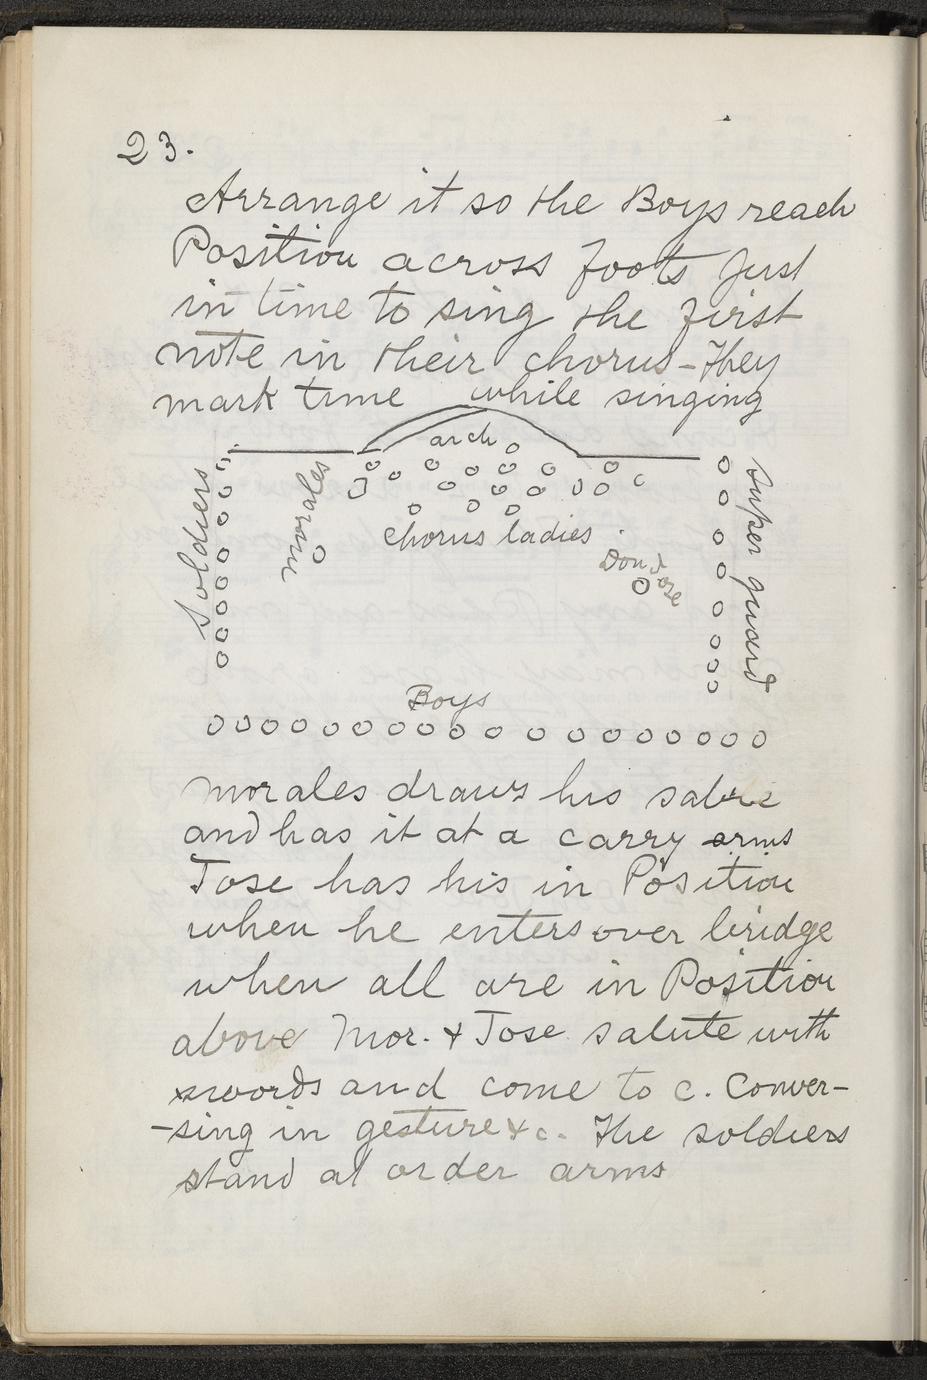 23.
Arrange it so the Boys reach
Position across foots Just
in time to sing the first
note in their chorus - They
mark time while singing
arch
Soldiers
Morales
chorus ladies
Don Jose
super guard
Boys
Morales draws his sabre
and has it at a carry arms
Jose has his in Position
when he enters over bridge
when all are in Position
above Mor. & Jose salute with
swords and come to c. Conver-
-sing in gesture &c. The soldiers
stand at order arms